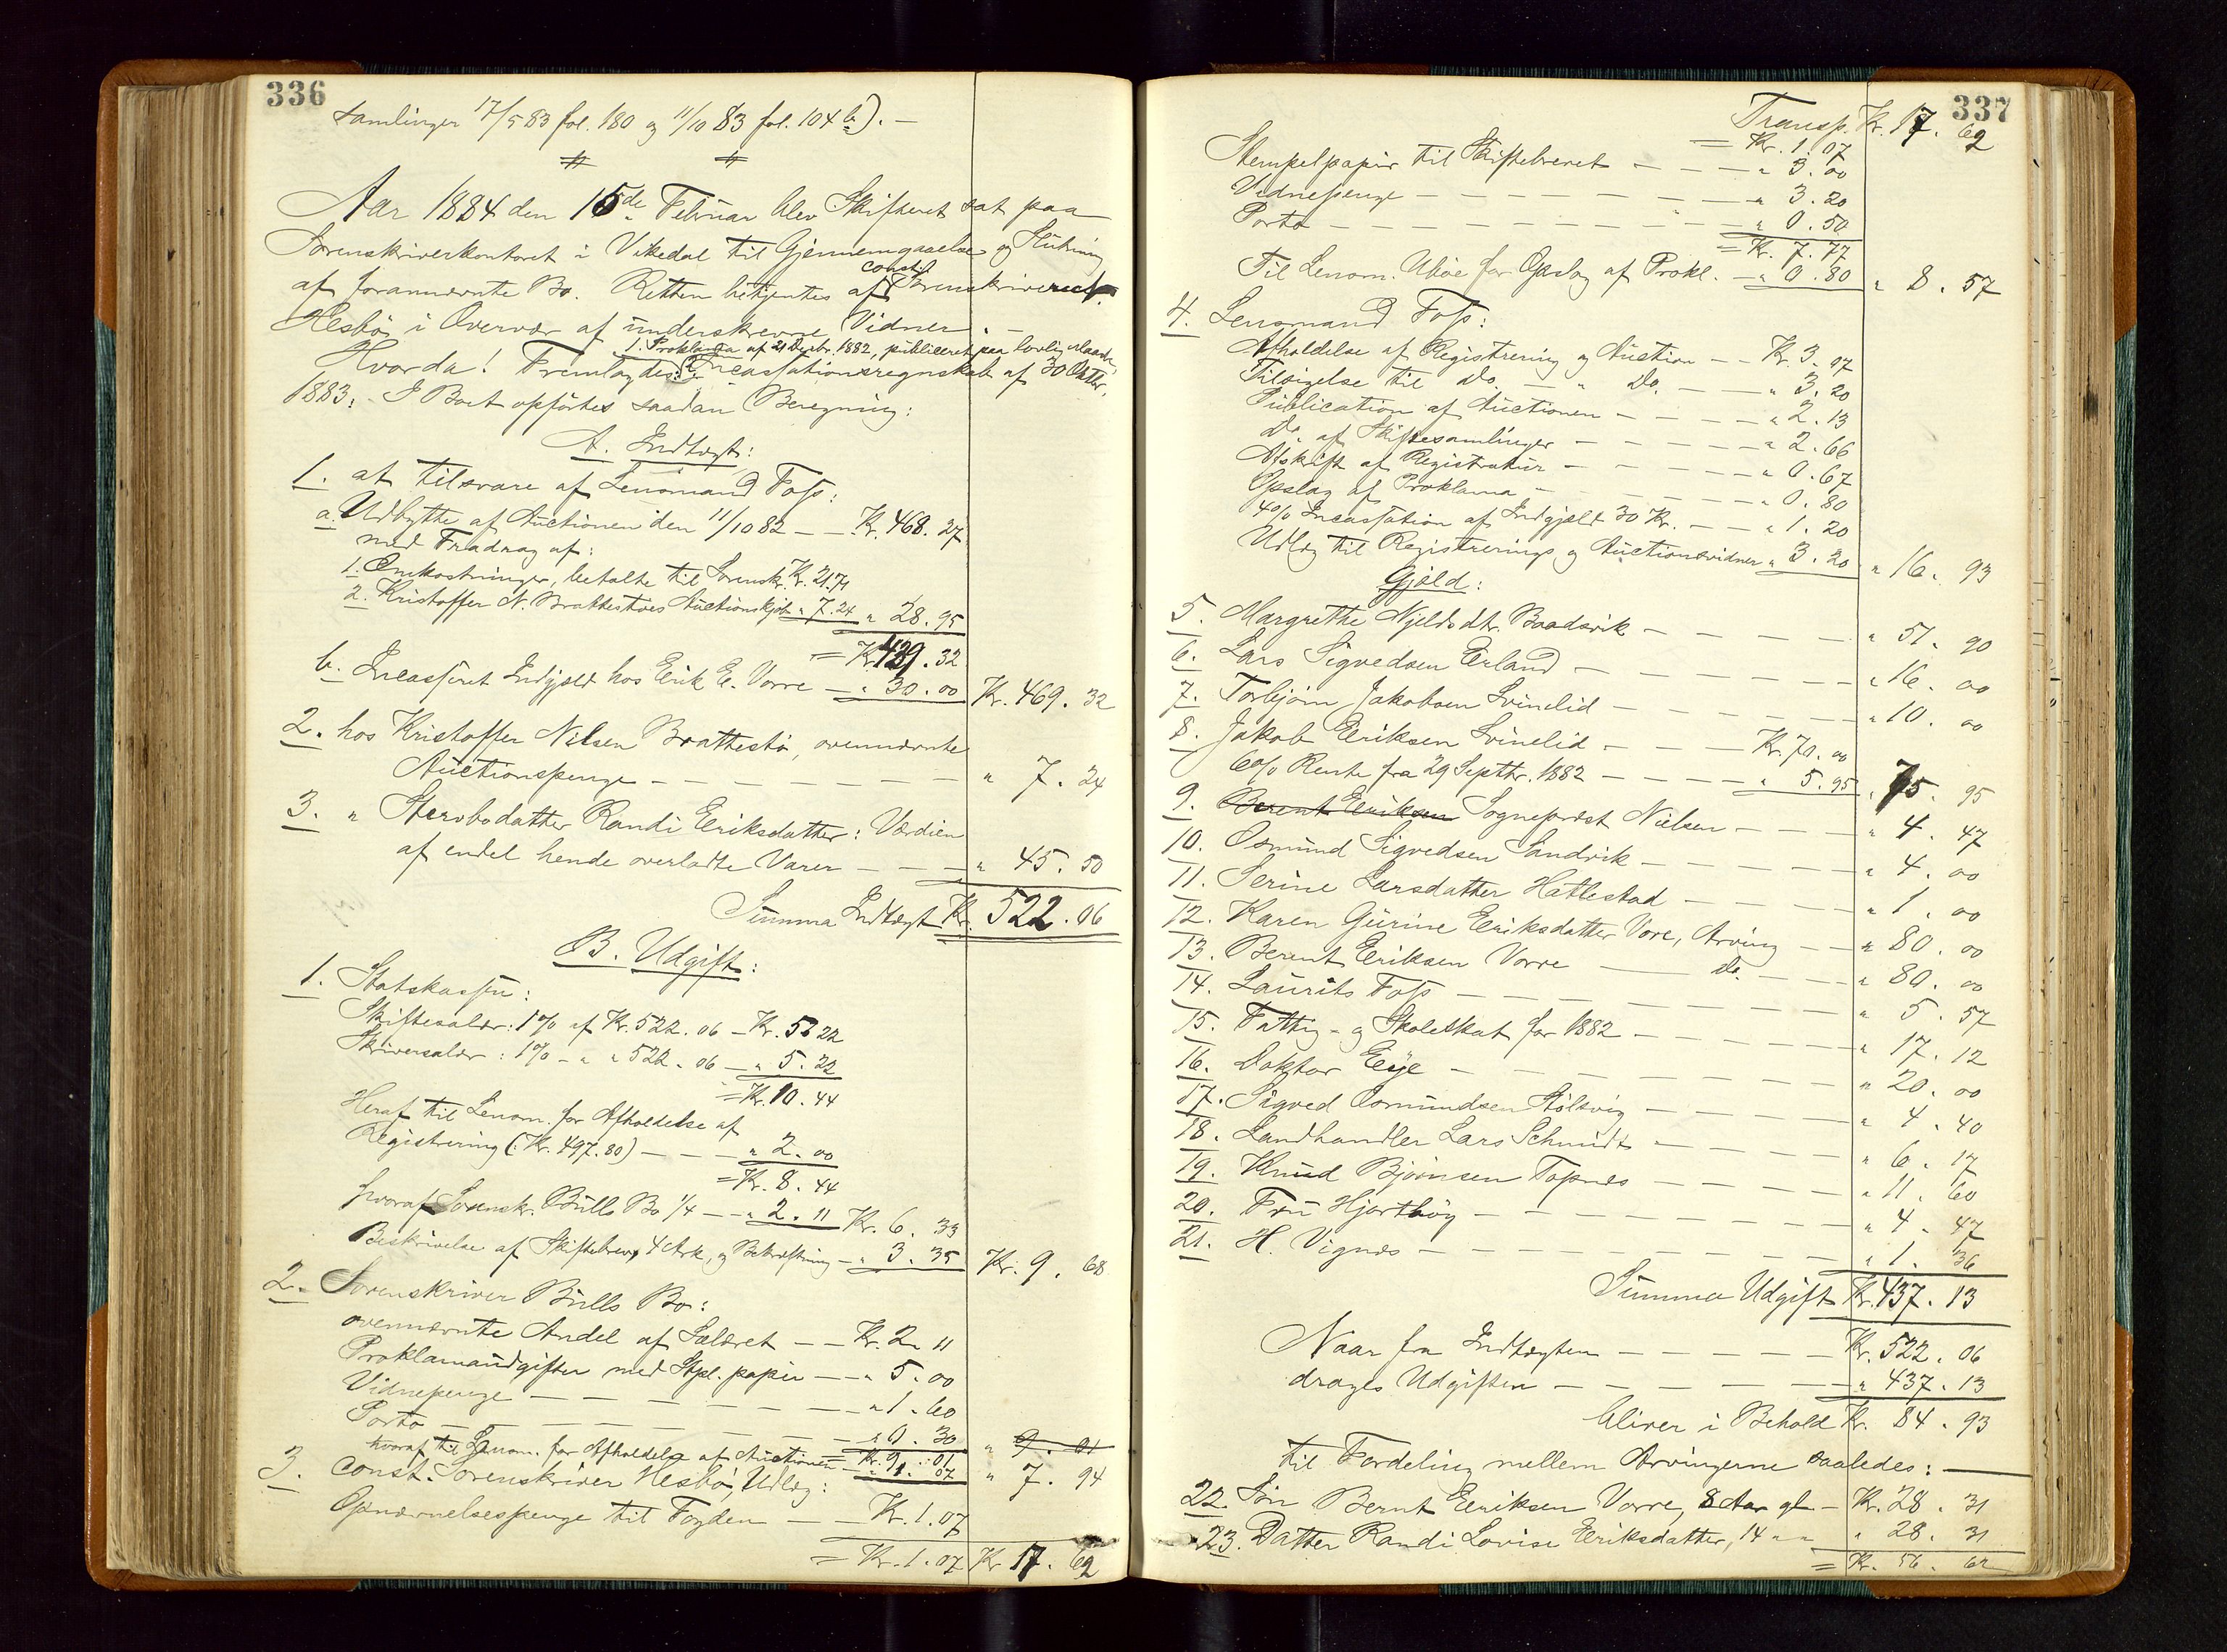 336
samlinger 17/5 83 fol. 180 og 11/10 83 fol. 104 b). —
Aar 1884 den 15de Februar blev Skifteret sat paa
Sorenskriverkontoret i Vikedal til Gjennemgaaelse og Slutning
af forannævnte Bo. Retten betjentes af const. Sorenskriver
Hesbö i Overvær af underskrevne Vidner. —
1. Proklama af 21 Decbr. 1882, publiceret paa lovlig Maade,
Hvorda! Fremlagdes: 2. Incassationsregnskab af 30 Oktbr.
1883. I Boet opförtes saadan Beregning:
A. Indtægt:
1. at tilsvare af Lensmand Foss:
a. Udbytte af Auctionen den 11/10 82 — — Kr. 468. 27
med Fradrag af:
1. Omkostninger, betalte til Sorenskr. Kr. 21.71
2. Kristoffer N. Brattestöes Auctionskjöb " 7.24 " 28. 95
= Kr. 439. 32
b. Incasseret Indgjæld hos Eirik E. Vorre — " 30. 00 Kr. 469. 32
2. hos Kristoffer Nilsen Brattestö, ovennævnte
Auctionspenge — — — — — — " 7. 24
3. " Stervbodatter Randi Eriksdatter: Værdien
af endel hende overladte Varer — — — " 45. 50
Summa Indtægt Kr. 522. 06
B. Udgift:
1. Statskassen:
Skiftesalær: 1% af Kr. 522. 06 — Kr. 5 22
Skriversalær: 1% — " " 522. 06 — " 5. 22
= Kr. 10. 44
Heraf til Lensm. for Afholdelse af
Registrering (: Kr. 497. 80) — — — " 2. 00
= Kr. 8. 44
hvoraf Sorenskr. Bulls Bo 1/4 — — " 2. 11 Kr. 6. 33
Beskrivelse af Skiftebrev, 4 Ark, og Bekræftning — " 3. 35 Kr. 9. 68
2. Sorenskriver Bulls Bo:
ovennævnte Andel af Salæret — — Kr. 2. 11
Proklamaudgifter med Stpl. papir — — " 5. 00
Vidnepenge — — — — — — " 1. 60
Porto — — — — — — " 0. 30 " 9. 01
= Kr. 9. 01
hvoraf til Lensm. for Afholdelse af Auctionen — " 1. 07 " 7. 94
3. const. Sorenskriver Hesbö, Udlæg:
Opnævnelsespenge til Fogden — — Kr. 1. 07
= Kr. 1. 07 Kr. 17. 62
337
Transp. Kr. 17. 62
= Kr. 1. 07
Stempelpapir til Skiftebrevet — — — " 3. 00
Vidnepenge — — — — — — " 3. 20
Porto — — — — — — — " 0. 50
= Kr. 7. 77
Til Lensm. Ubøe for Opslag af Prokl. — " 0. 80 " 8. 57
4. Lensmand Foss:
Afholdelse af Registrering og Auction — — Kr. 3. 07
Tilsigelse til do. — " do. — — " 3. 20
Publication af Auctionen — — — — " 2. 13
do. af Skiftesamlinger — — — — " 2. 66
Afskrift af Registratur — — — — " 0. 67
Opslag af Proklama — — — — " 0. 80
4% Incassation af Indgjæld 30 Kr. — — " 1. 20
Udlæg til Registrerings og Auctionsvidner " 3. 20 " 16. 93
Gjæld:
5. Margrethe Njeldsdtr. Baadsvik — — — — " 51. 90
6. Lars Sigvedsen Erland — — — — — " 16. 00
7. Torbjörn Jakobsen Svinelid — — — — " 10. 00
8. Jakob Eriksen Svinelid — — — Kr. 70. 00
6% Rente fra 29 Septbr. 1882 — — — — " 5. 95 " 75. 95
9. Berent Eiriksen Sogneprest Nielsen — — — " 4. 47
10. Osmund Sigvedsen Sandvik — — — — " 4. 00
11. Serine Larsdatter Hatlestad — — — — " 1. 00
12. Karen Gurine Eiriksdatter Vore, Arving — — " 80. 00
13. Berent Eriksen Vorre — do. — — " 80. 00
14. Laurits Foss — — — — — — " 5. 57
15. Fattig- og Skoleskat for 1882 — — — — " 17. 12
16. Doktor Eeye — — — — — — " 20. 00
17. Sigved Osmundsen Stölsvig — — — — " 4. 40
18. Landhandler Lars Schmidt — — — — " 6. 17
19. Knud Björnsen Topnes — — — — " 11. 60
20. Fru Hjorthöy — — — — — — " 4. 47
21. H. Vignes — — — — — — — " 1. 36
Summa Udgift Kr. 437. 13
Naar fra Indtægten — — — — — Kr. 522. 06
drages Udgiften — — — — — — " 437. 13
bliver i Behold Kr. 84. 93
til Fordeling mellem Arvingerne saaledes: —
22. Sön Bernt Eeriksen Vorre, 8 Aar gl. — Kr. 28. 31
23. Datter Randi Lovise Eeriksdatter, 14 " " " 28. 31
= Kr. 56. 62